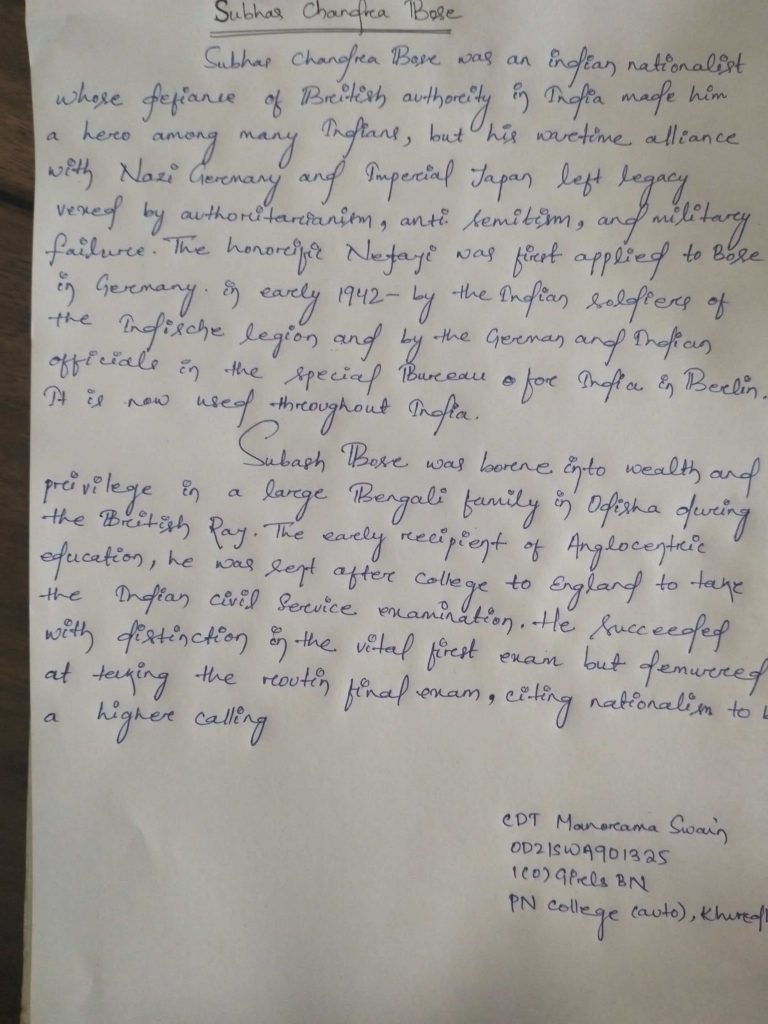 Subhas Chandra Bose
Subhas Chandra Bose was an indian nationalist
whose defiance of British authority in India made him
a hero among many Indians, but his wartime alliance
with Nazi Germany and Imperial Japan left legacy
vexed by authoritarianism, anti semitism, and military
failure. The honorific Netaji was first applied to Bose
in Germany. in early 1942- by the Indian soldiers of
the Indische legion and by the German and Indian
officials in the special Bureau for India in Berlin.
It is now used throughout India.
Subash Bose was borne into wealth and
privilege in a large Bengali family in Odisha during
the British Raj. The early recipient of Anglocentric
education, he was sent after college to England to take
the Indian civil Service examination. He succeeded
with distinction in the vital first exam but demurred
at taking the routin final exam, citing nationalism to
a higher calling
CDT Manorama Swain
OD21SWA901325
1(O) Girls BN
PN College (auto),